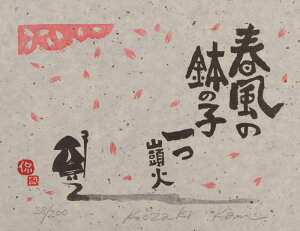 春風の
鉢の子
一つ
山頭火
28/200 Kozaki Kan